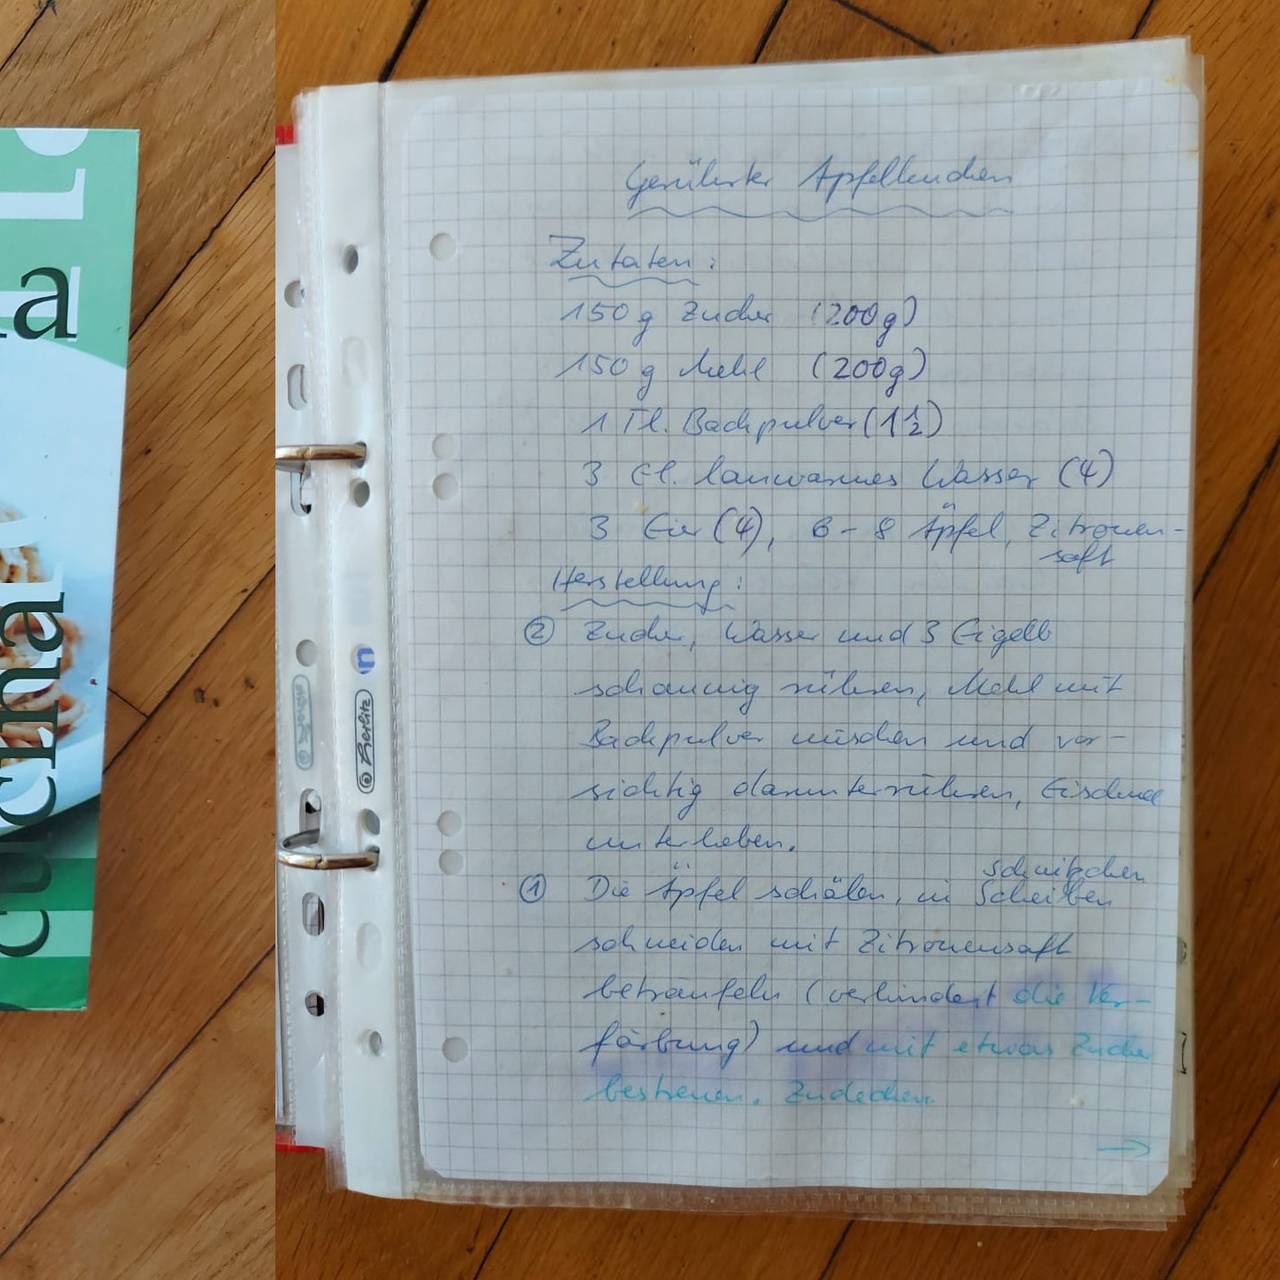 a
cucina
Gerührter Apfelkuchen
Zutaten:
150 g Zucker (200g)
150 g Mehl (200g)
1 Tl. Backpulver (1 1/2)
3 El. lauwarmes Wasser (4)
3 Eier (4), 6 - 8 Äpfel, Zitronen-
saft
Herstellung:
② Zucker, Wasser und 3 Eigelb
schaumig rühren, Mehl mit
Backpulver mischen und vor-
sichtig darunterrühren, Eischnee
unterheben.
schnitzchen
① Die Äpfel schälen, in Scheiben
schneiden mit Zitronensaft
beträufeln (verhindert die Ver-
färbung) und mit etwas Zucker
bestreuen. Zudecken.
→
Herlitz